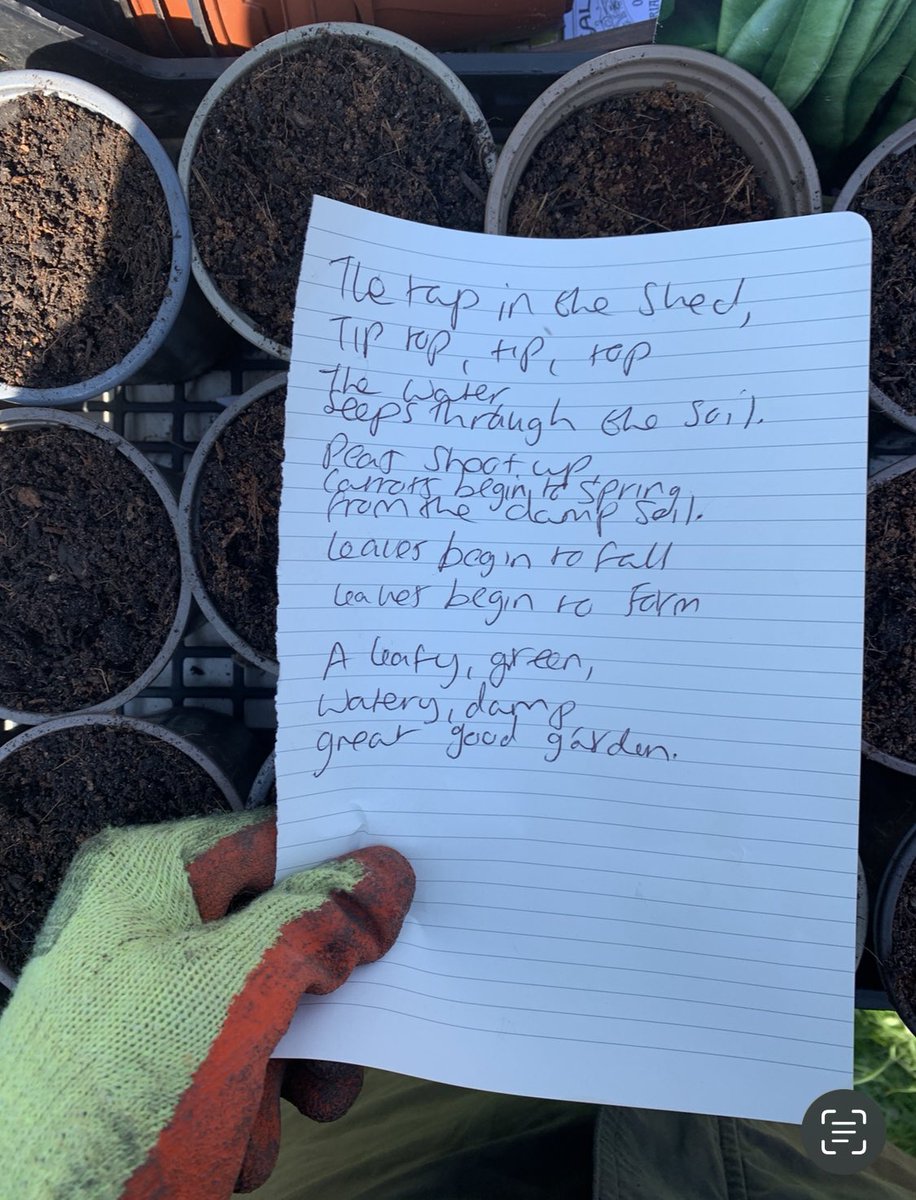 AL
The tap in the shed,
Tip top, tip, top
The water
seeps through the soil.
Peas shoot up,
Carrots begin to spring
from the damp soil.
Leaves begin to fall
Leaves begin to form
A leafy, green,
Watery, damp
great good garden.